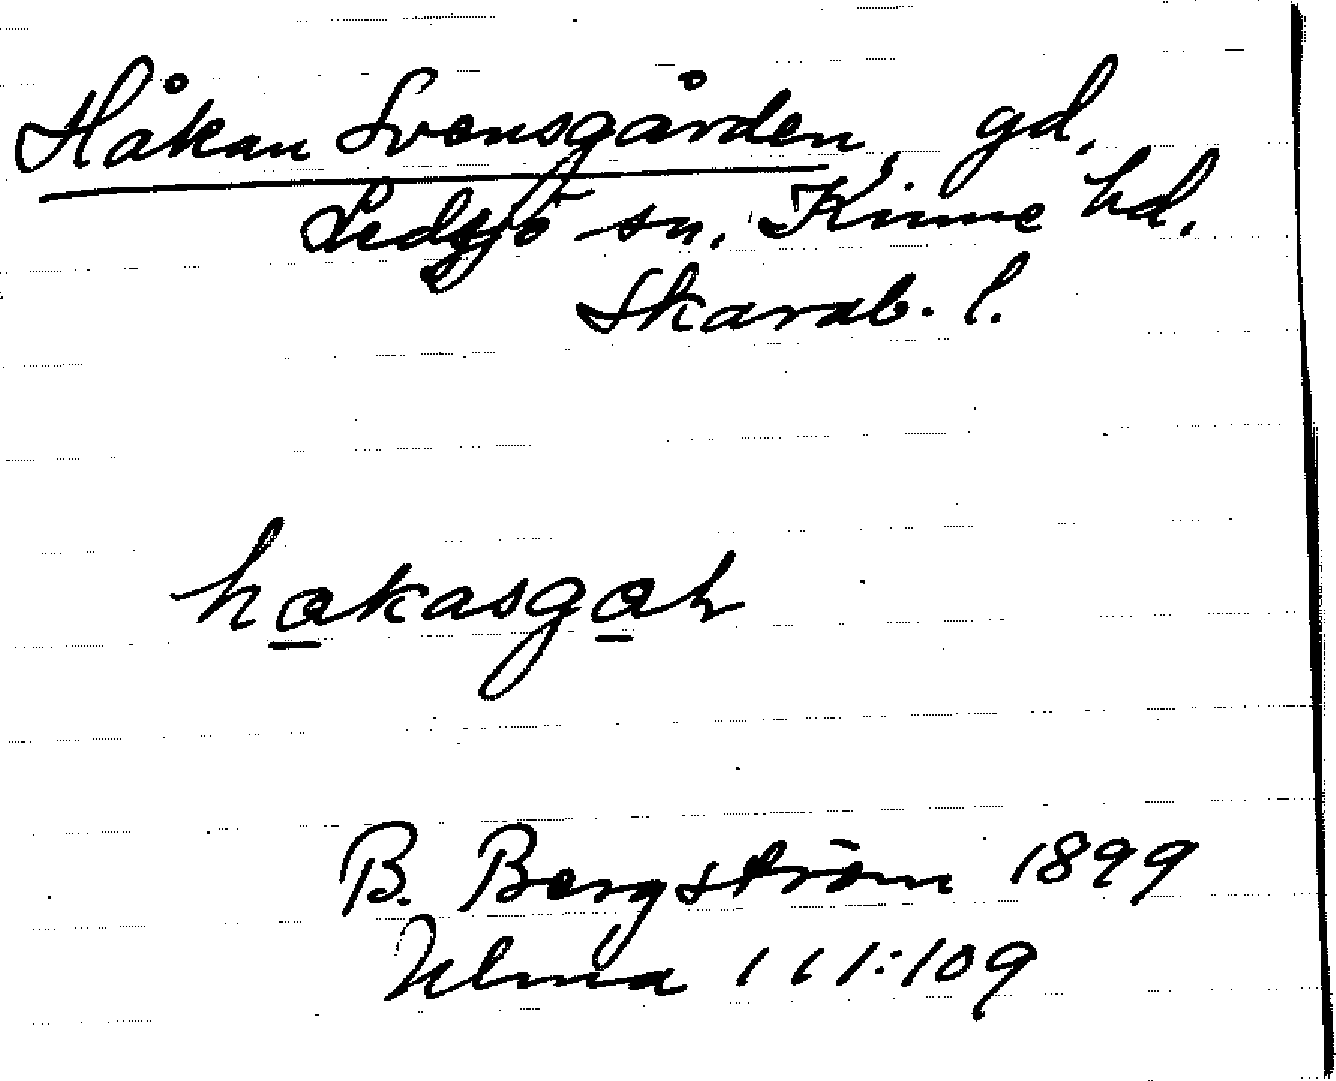 Håkan Svensgården, gd,
Ledsjö sn. Kinne hd.
Skarab. l.
hakasgaḷ
B. Bergström 1899
Ulma 111:109